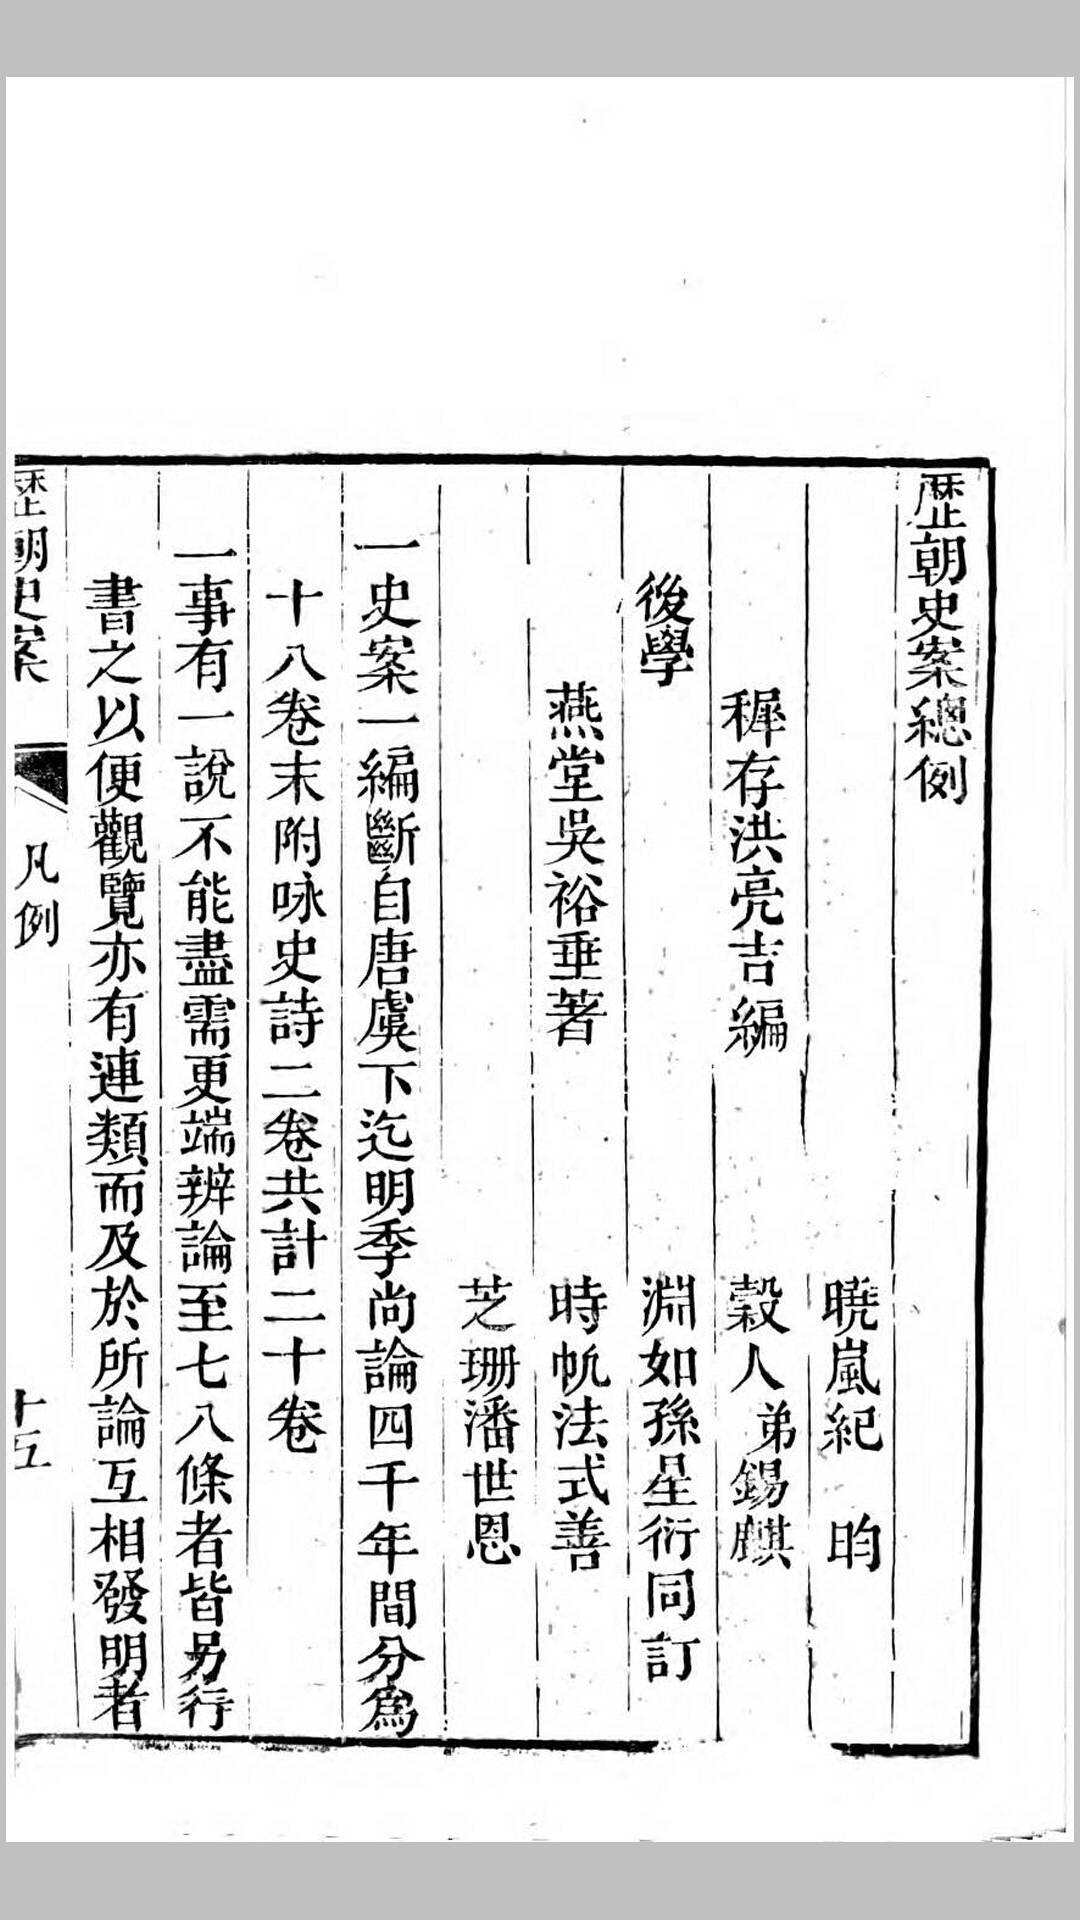 歴朝史案總例
曉嵐紀　昀
稺存洪亮吉編　榖人弟錫麒
後學　淵如孫星衍同訂
燕堂吳裕垂著　時帆法式善
芝珊潘世恩
一史案一編斷自唐虞下迄明季尚論四千年間分為
十八卷末附咏史詩二卷共計二十卷
一事有一說不能盡需更端辨論至七八條者皆另行
書之以便觀覽亦有連類而及於所論互相發明者
歴朝史案　凡例　十五